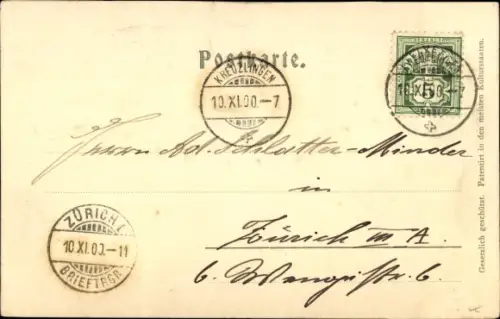 Postkarte.
KREUZLINGEN
10.XI.00.-7
KREUZLINGEN
10.XI.00.-7
5
Herrn Ad. Schlatter-Minder
in
Zürich III A.
6. Wengistr. 6.
ZÜRICH 1
10.XI.00.-11
BRIEFTRGR.
Gesetzlich geschützt. Patentirt in den meisten Kulturstaaten.